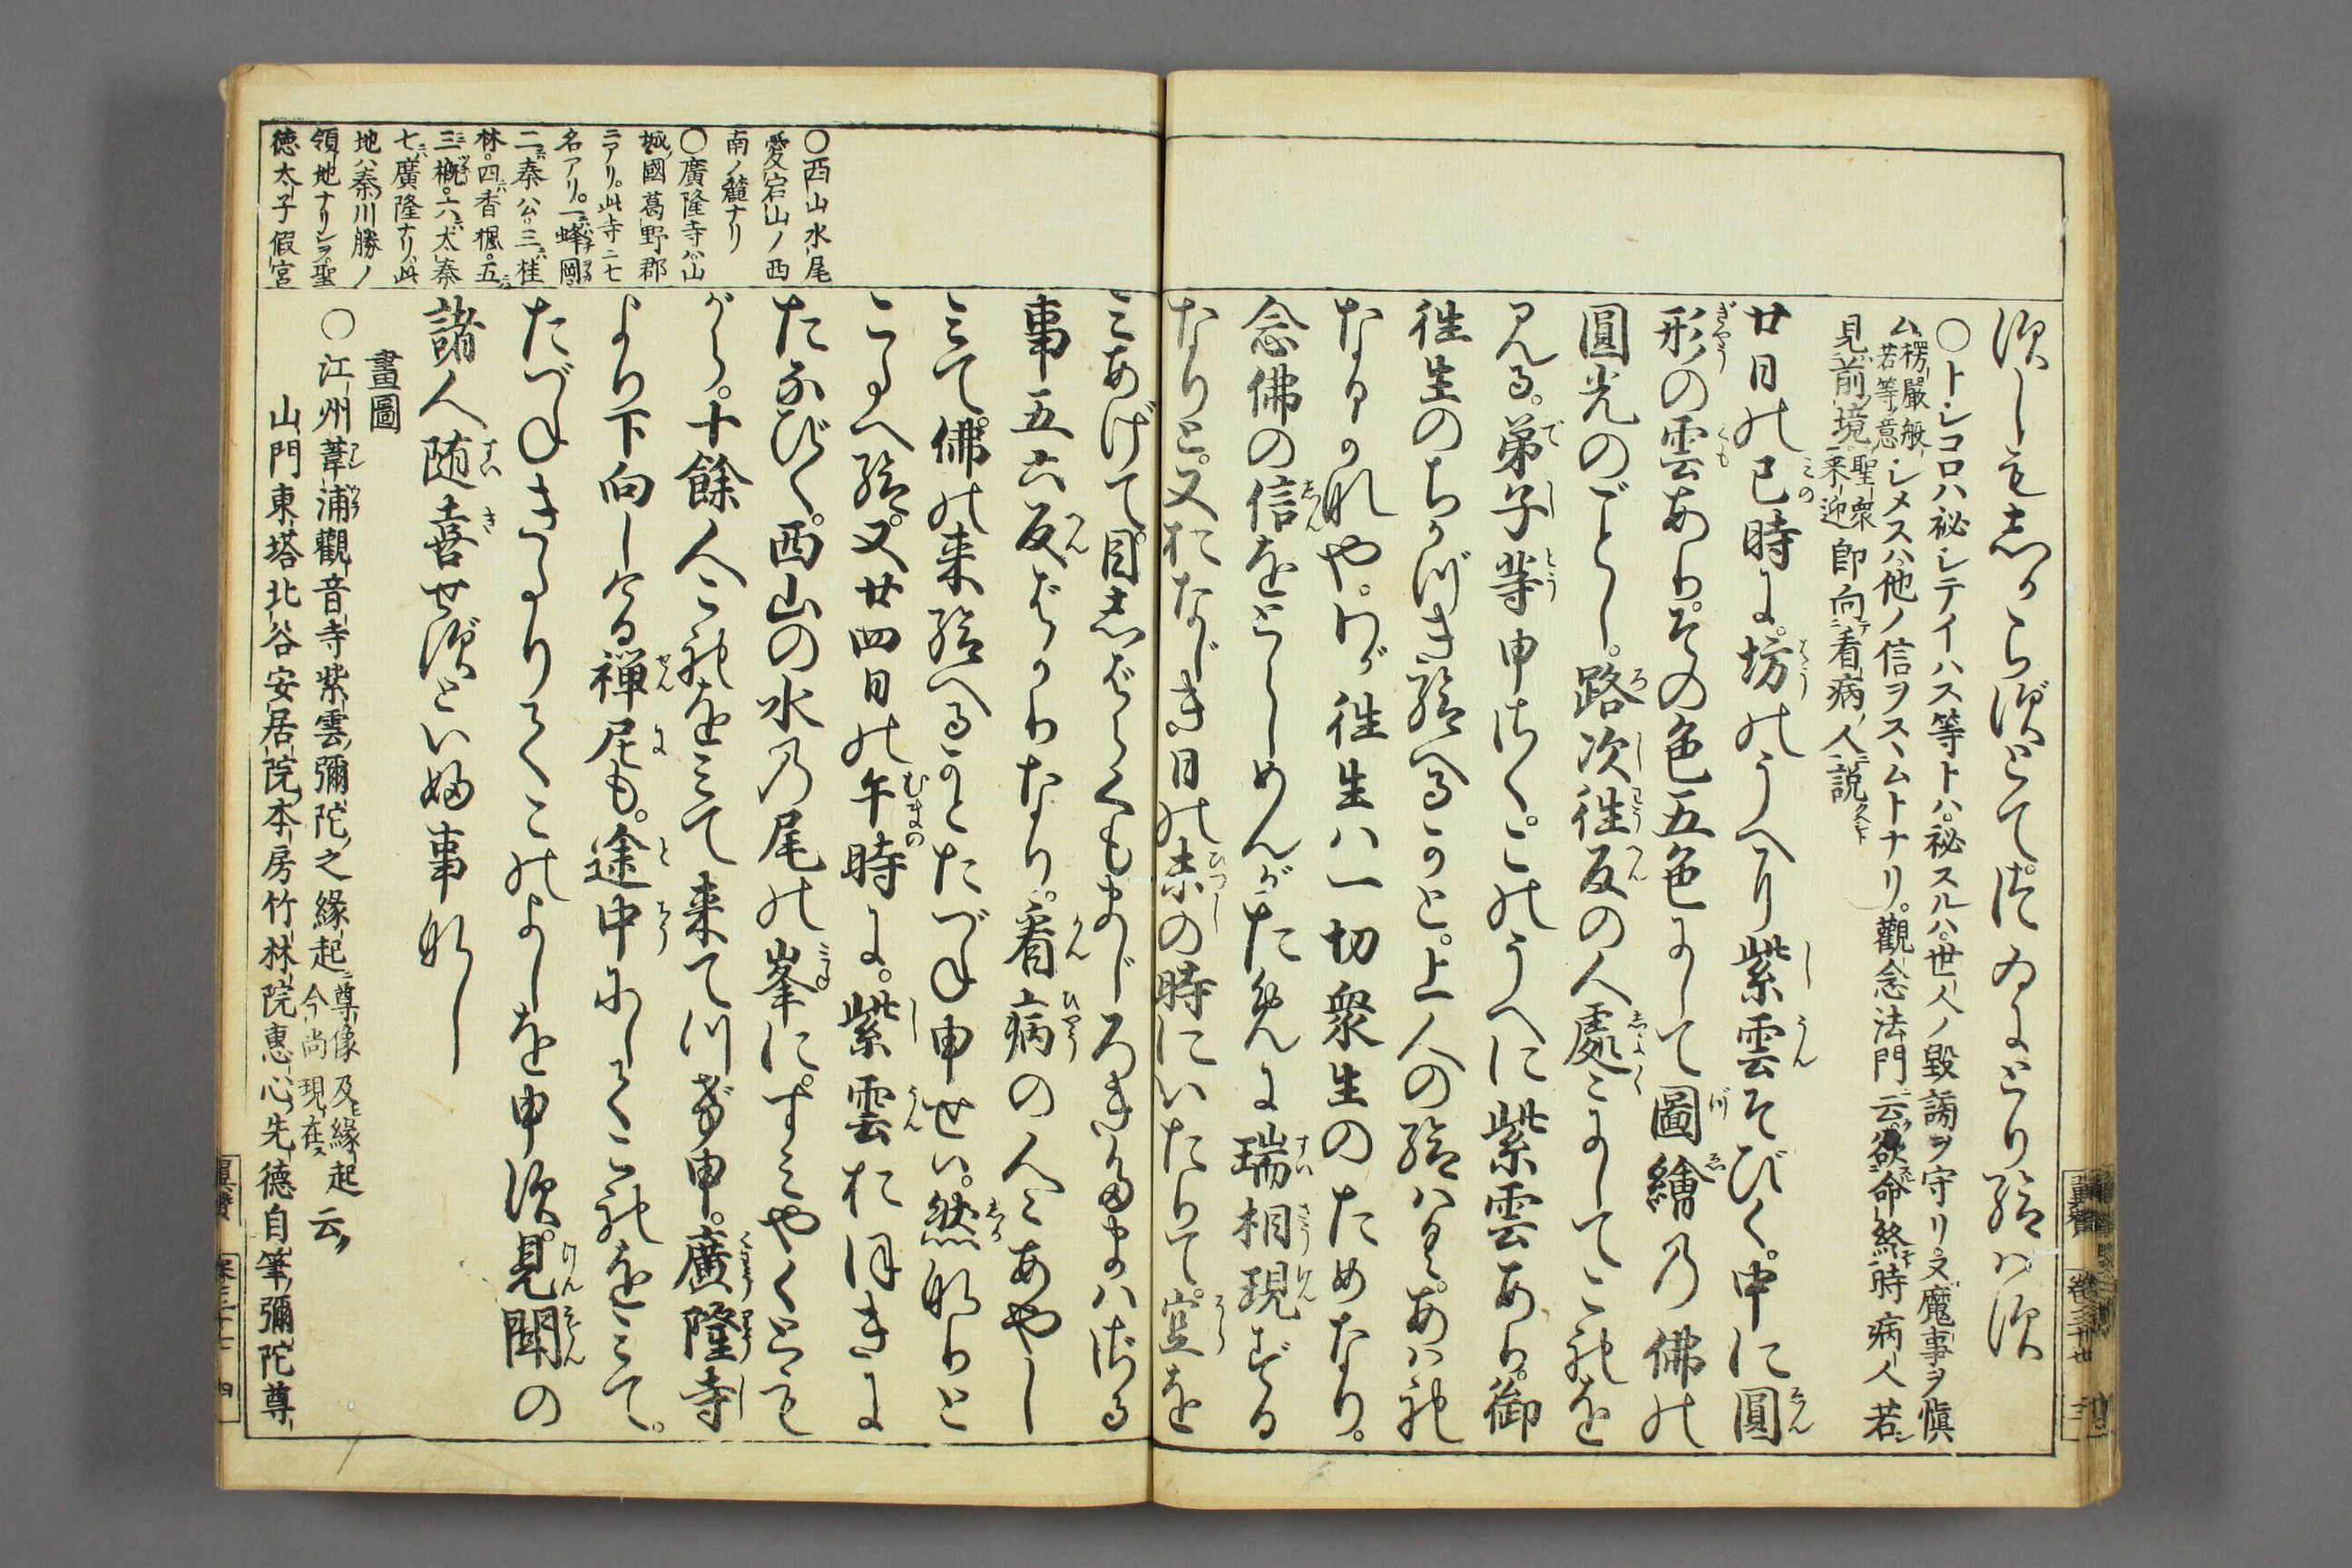 須しもしからずとて。つゐにとり給はす
○トシコロハ祕シテイハス等トハ。祕スルハ。世人ノ毀謗ヲ守リ。又魔事ヲ愼
ム。楞嚴般若等意 シメスハ。他ノ信ヲスヽムトナリ。觀念法門云。欲命終時。病人若シ
見前境。聖衆來迎 即向看病人說
廿日の巳時に。坊のうへに紫雲そびく。中に圓
形の雲あり。その色五色にして圖繪乃佛の
圓光のごとし。路次往反の人處々にしてこれを
みる。弟子等申さく。このうへに紫雲あり。御
往生のちかづき給へるかと。上人の給はく。あはれ
なるかなや。わが往生ハ一切衆生のためなり。
念佛の信をとらしめんがために瑞相現ずる
なりと。又おなじき日の未の時にいたりて。空を
みあげて。目しばらくもまじろきたまはざる
事五六反ばかりなり。看病の人々あやし
みて。佛の来給へるかとたづね申せは。然なりと
こたへ給。又廿四日の午時に。紫雲おほきに
たなびく。西山の水乃尾の峯に。すみやくともが
がら。十餘人これをみて来て川げ申。廣隆寺
より下向しける禅尼も。途中にしてこれをみて。
たづねきたりてこのよしを申す。見聞の
諸人随喜せずといふ事なし
○西山水尾
愛宕山ノ西
南ノ麓ナリ
○廣隆寺ハ山
城國葛野郡
ニアリ。此寺ニ七
名アリ。一蜂岡
二秦公。三桂
林。四香楓。五
三槻。六太秦
七廣隆ナリ。此
地ハ秦川勝ノ
領地ナリシヲ。聖
徳太子假宮
畫圖
○江州葦浦觀音寺紫雲彌陀之緣起 尊像及緣起今尚現在 云
山門東塔北谷安居院本房竹林院惠心先德自筆彌陀尊